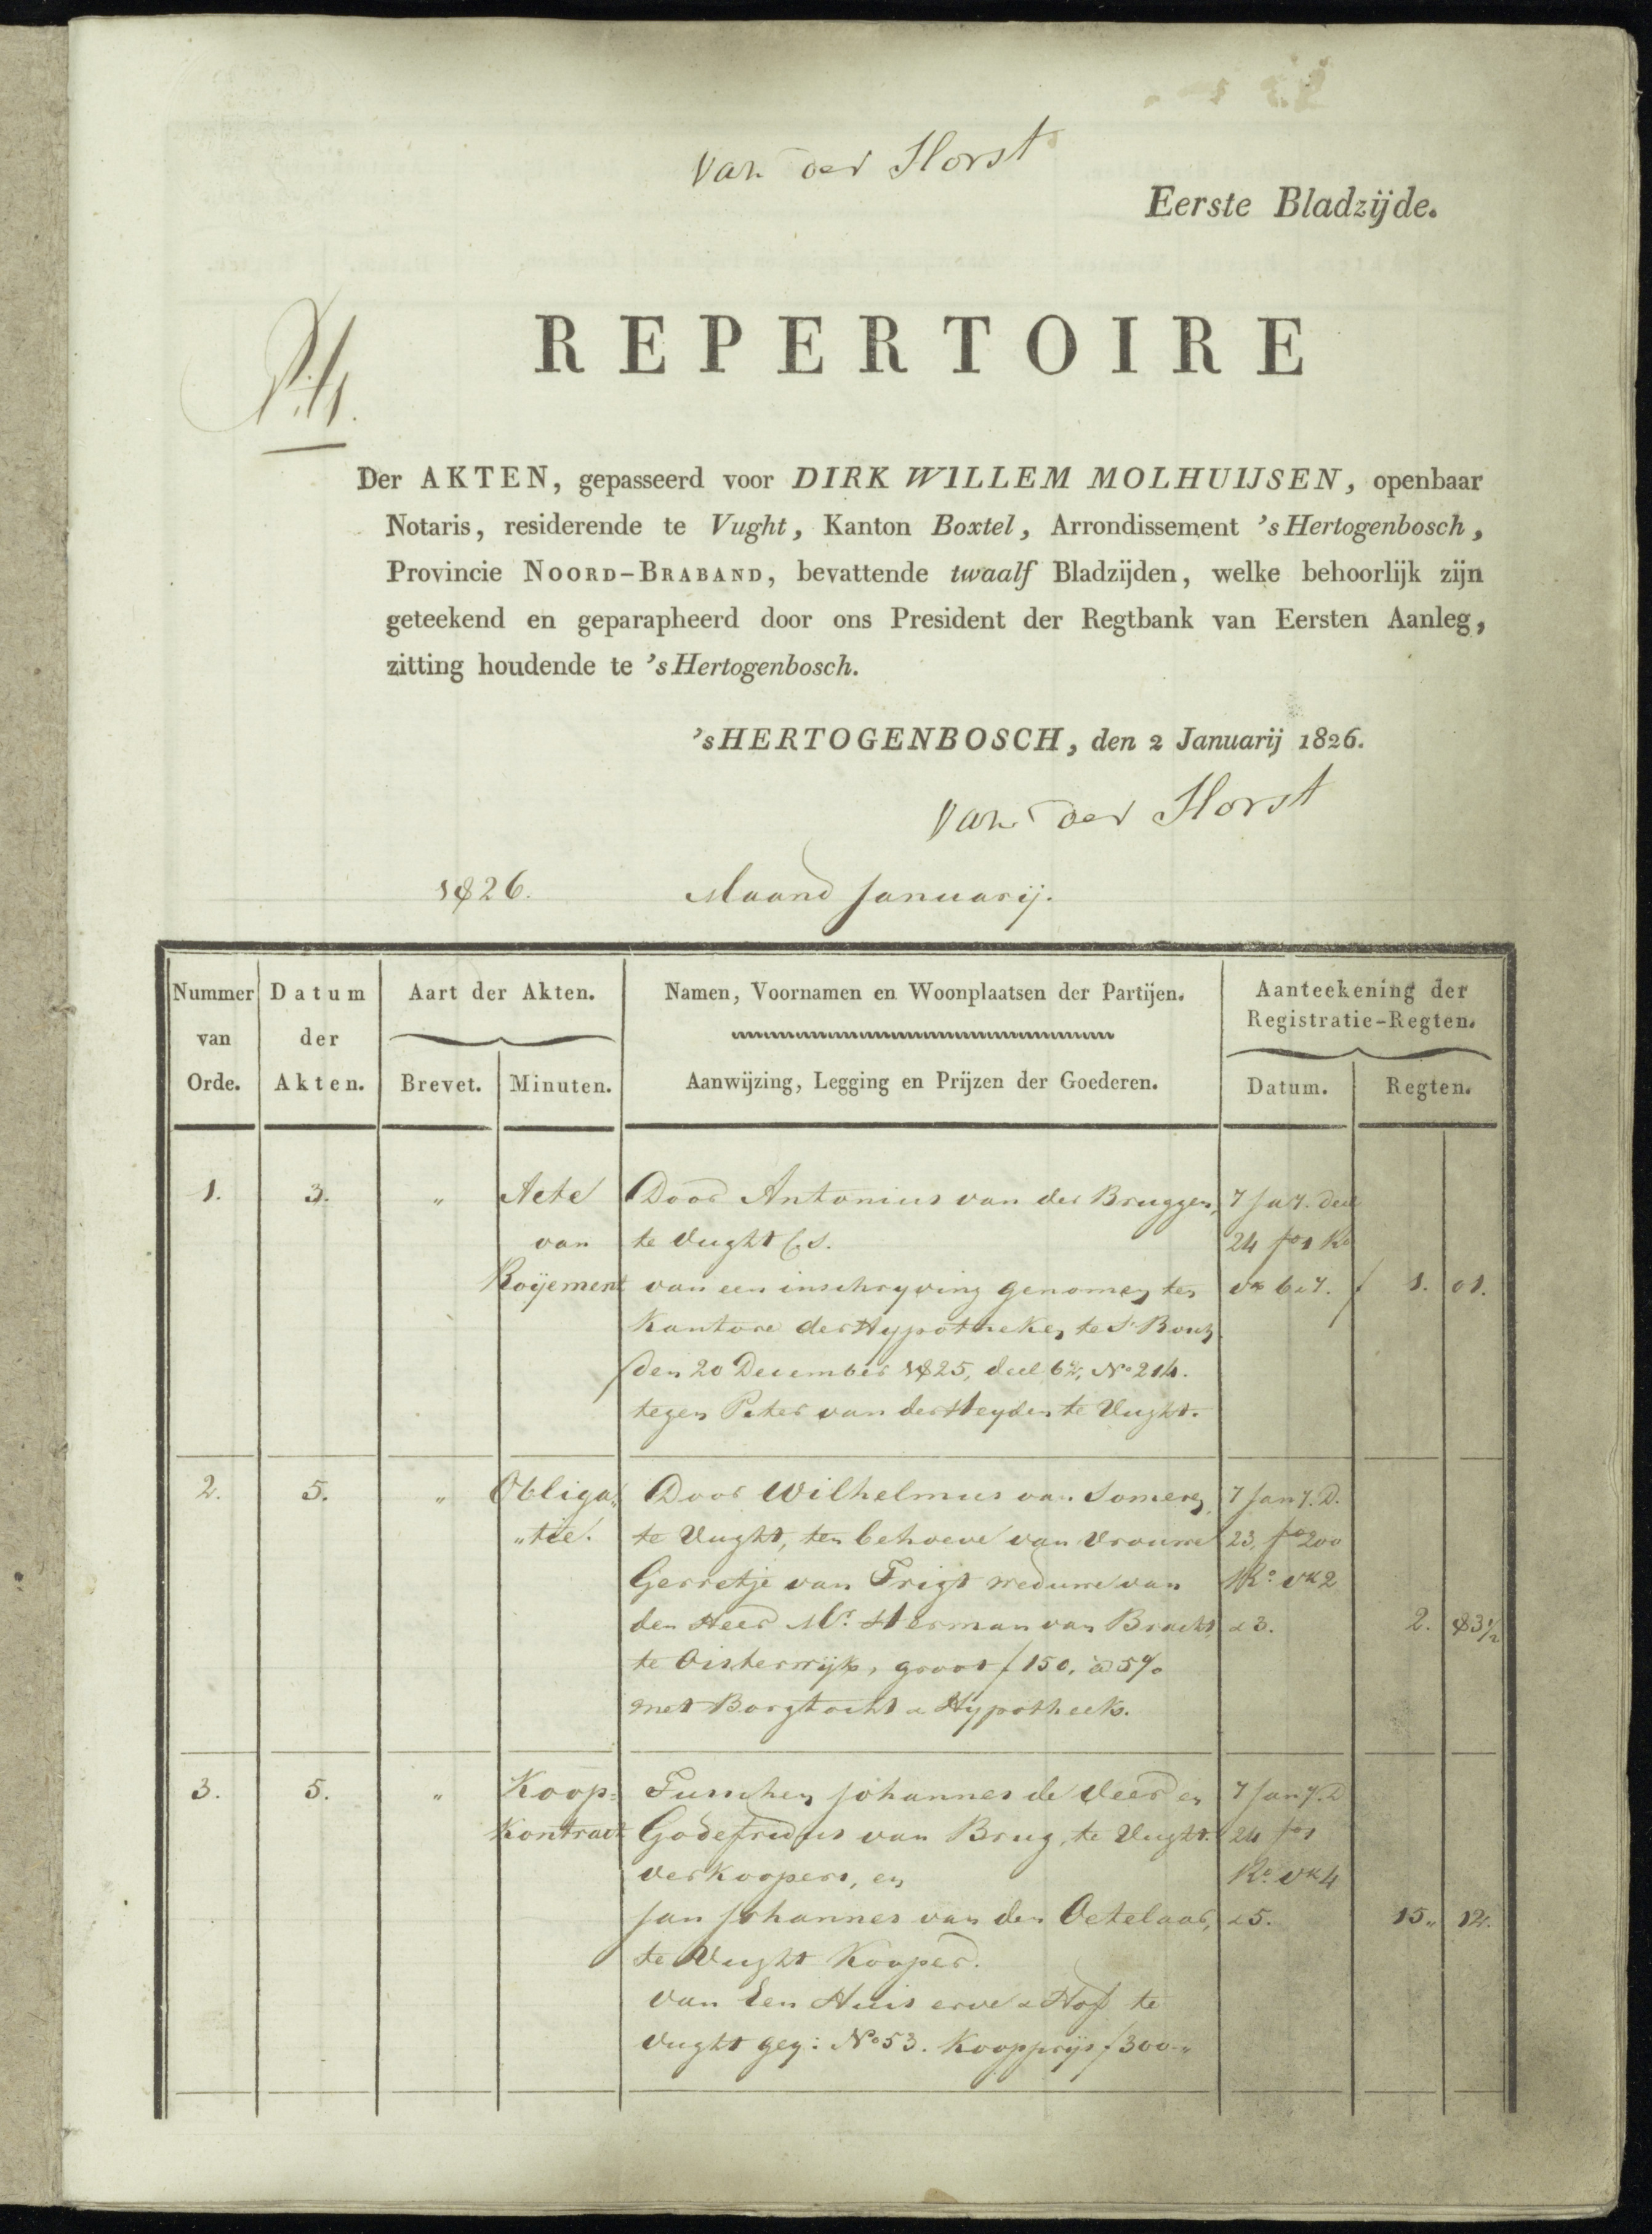 Van der Horst
Eerste Bladzijde.
REPERTOIRE
Der AKTEN, gepasseerd voor DIRK WILLEM MOLHUIJSEN, openbaar
Notaris, residerende te Vught, Kanton Boxtel, Arrondissement 's Hertogenbosch,
Provincie NOORD-BRABAND, bevattende twaalf Bladzijden, welke behoorlijk zijn
geteekend en geparapheerd door ons President der Regtbank van Eersten Aanleg,
zitting houdende te 's Hertogenbosch.
's HERTOGENBOSCH, den 2 Januarij 1826.
Van der Horst
1826. Maand Januarij.
Nummer van Orde.
Datum der Akten.
Aart der Akten.
Brevet. Minuten.
Namen, Voornamen en Woonplaatsen der Partijen.
Aanwijzing, Legging en Prijzen der Goederen.
Aanteekening der
Registratie-Regten.
Datum. Regten.
1. 3. " Acte Door Antonius van der Bruggen, 7 Ja 7. deel
van te Vught C.S. 24 fo 1 Ro
Roijement van een inschryving genomen ten vk 6 & 7. f 1. 01.
Kantore der Hypotheken te S Bosch
den 20 December 1825, deel 62, No 214.
tegen Peter van der Heyden te Vught.
2. 5. " Obliga" Door Wilhelmus van Someren, 7 Jan 7. D.
"tie. te Vught, ten behoeve van Vrouwe 23, fo 200
Gerretje van Trigt weduwe van Ro vk 2
den Heer Mr. Herman van Bracht, & 3. 2. 83½
te Oisterwijk, groot f 150, à 5%
met Borgtocht & Hypotheek.
3. 5. " Koop= Tusschen Johannes de Veer en 7 Jan 7. D
Kontract Godefridus van Brug, te Vught 24 fo 1
verkoopers, en Ro vk 4
Jan Johannes van den Oetelaar, & 5. 15" 12.
te Vught Kooper.
van Een Huis erve & Hof te
Vught geq: No 53. Koopprijs f 300-"